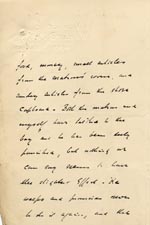 food, money, small articles
from the matron's room, and
sundry articles from the store
Cupboard. Both the matron and
myself have talked to the
boy and he has been duly
punished, but nothing we
can say seems to have
the slightest effect. He
weeps and promises never
to do it again, and then